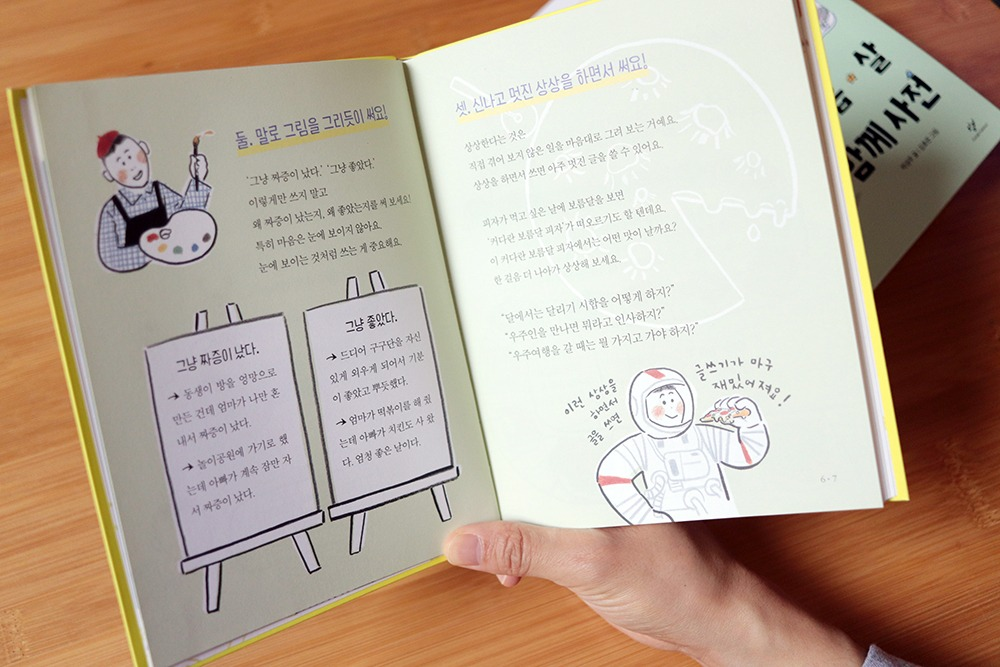 둘, 말로 그림을 그리듯이 써요!
'그냥 짜증이 났다.' '그냥 좋았다.'
이렇게만 쓰지 말고
왜 짜증이 났는지, 왜 좋았는지를 써 보세요!
특히 마음은 눈에 보이지 않아요.
눈에 보이는 것처럼 쓰는 게 중요해요.
그냥 짜증이 났다.
→ 동생이 방을 엉망으로
만든 건데 엄마가 나만 혼
내서 짜증이 났다.
→ 놀이공원에 가기로 했
는데 아빠가 계속 잠만 자
서 짜증이 났다.
그냥 좋았다.
→ 드디어 구구단을 자신
있게 외우게 되어서 기분
이 좋았고 뿌듯했다.
→ 엄마가 떡볶이를 해 줬
는데 아빠가 치킨도 사 왔
다. 엄청 좋은 날이다.
셋, 신나고 멋진 상상을 하면서 써요!
상상한다는 것은
직접 겪어 보지 않은 일을 마음대로 그려 보는 거예요.
상상을 하면서 쓰면 아주 멋진 글을 쓸 수 있어요.
피자가 먹고 싶은 날에 보름달을 보면
'커다란 보름달 피자'가 떠오르기도 할 텐데요.
이 커다란 보름달 피자에서는 어떤 맛이 날까요?
한 걸음 더 나아가 상상해 보세요.
"달에서는 달리기 시합을 어떻게 하지?"
"우주인을 만나면 뭐라고 인사하지?"
"우주여행을 갈 때는 뭘 가지고 가야 하지?"
이런 상상을
하면서
글을 쓰면
글쓰기가 마구
재밌어져요!
6 - 7
살
함께 사전